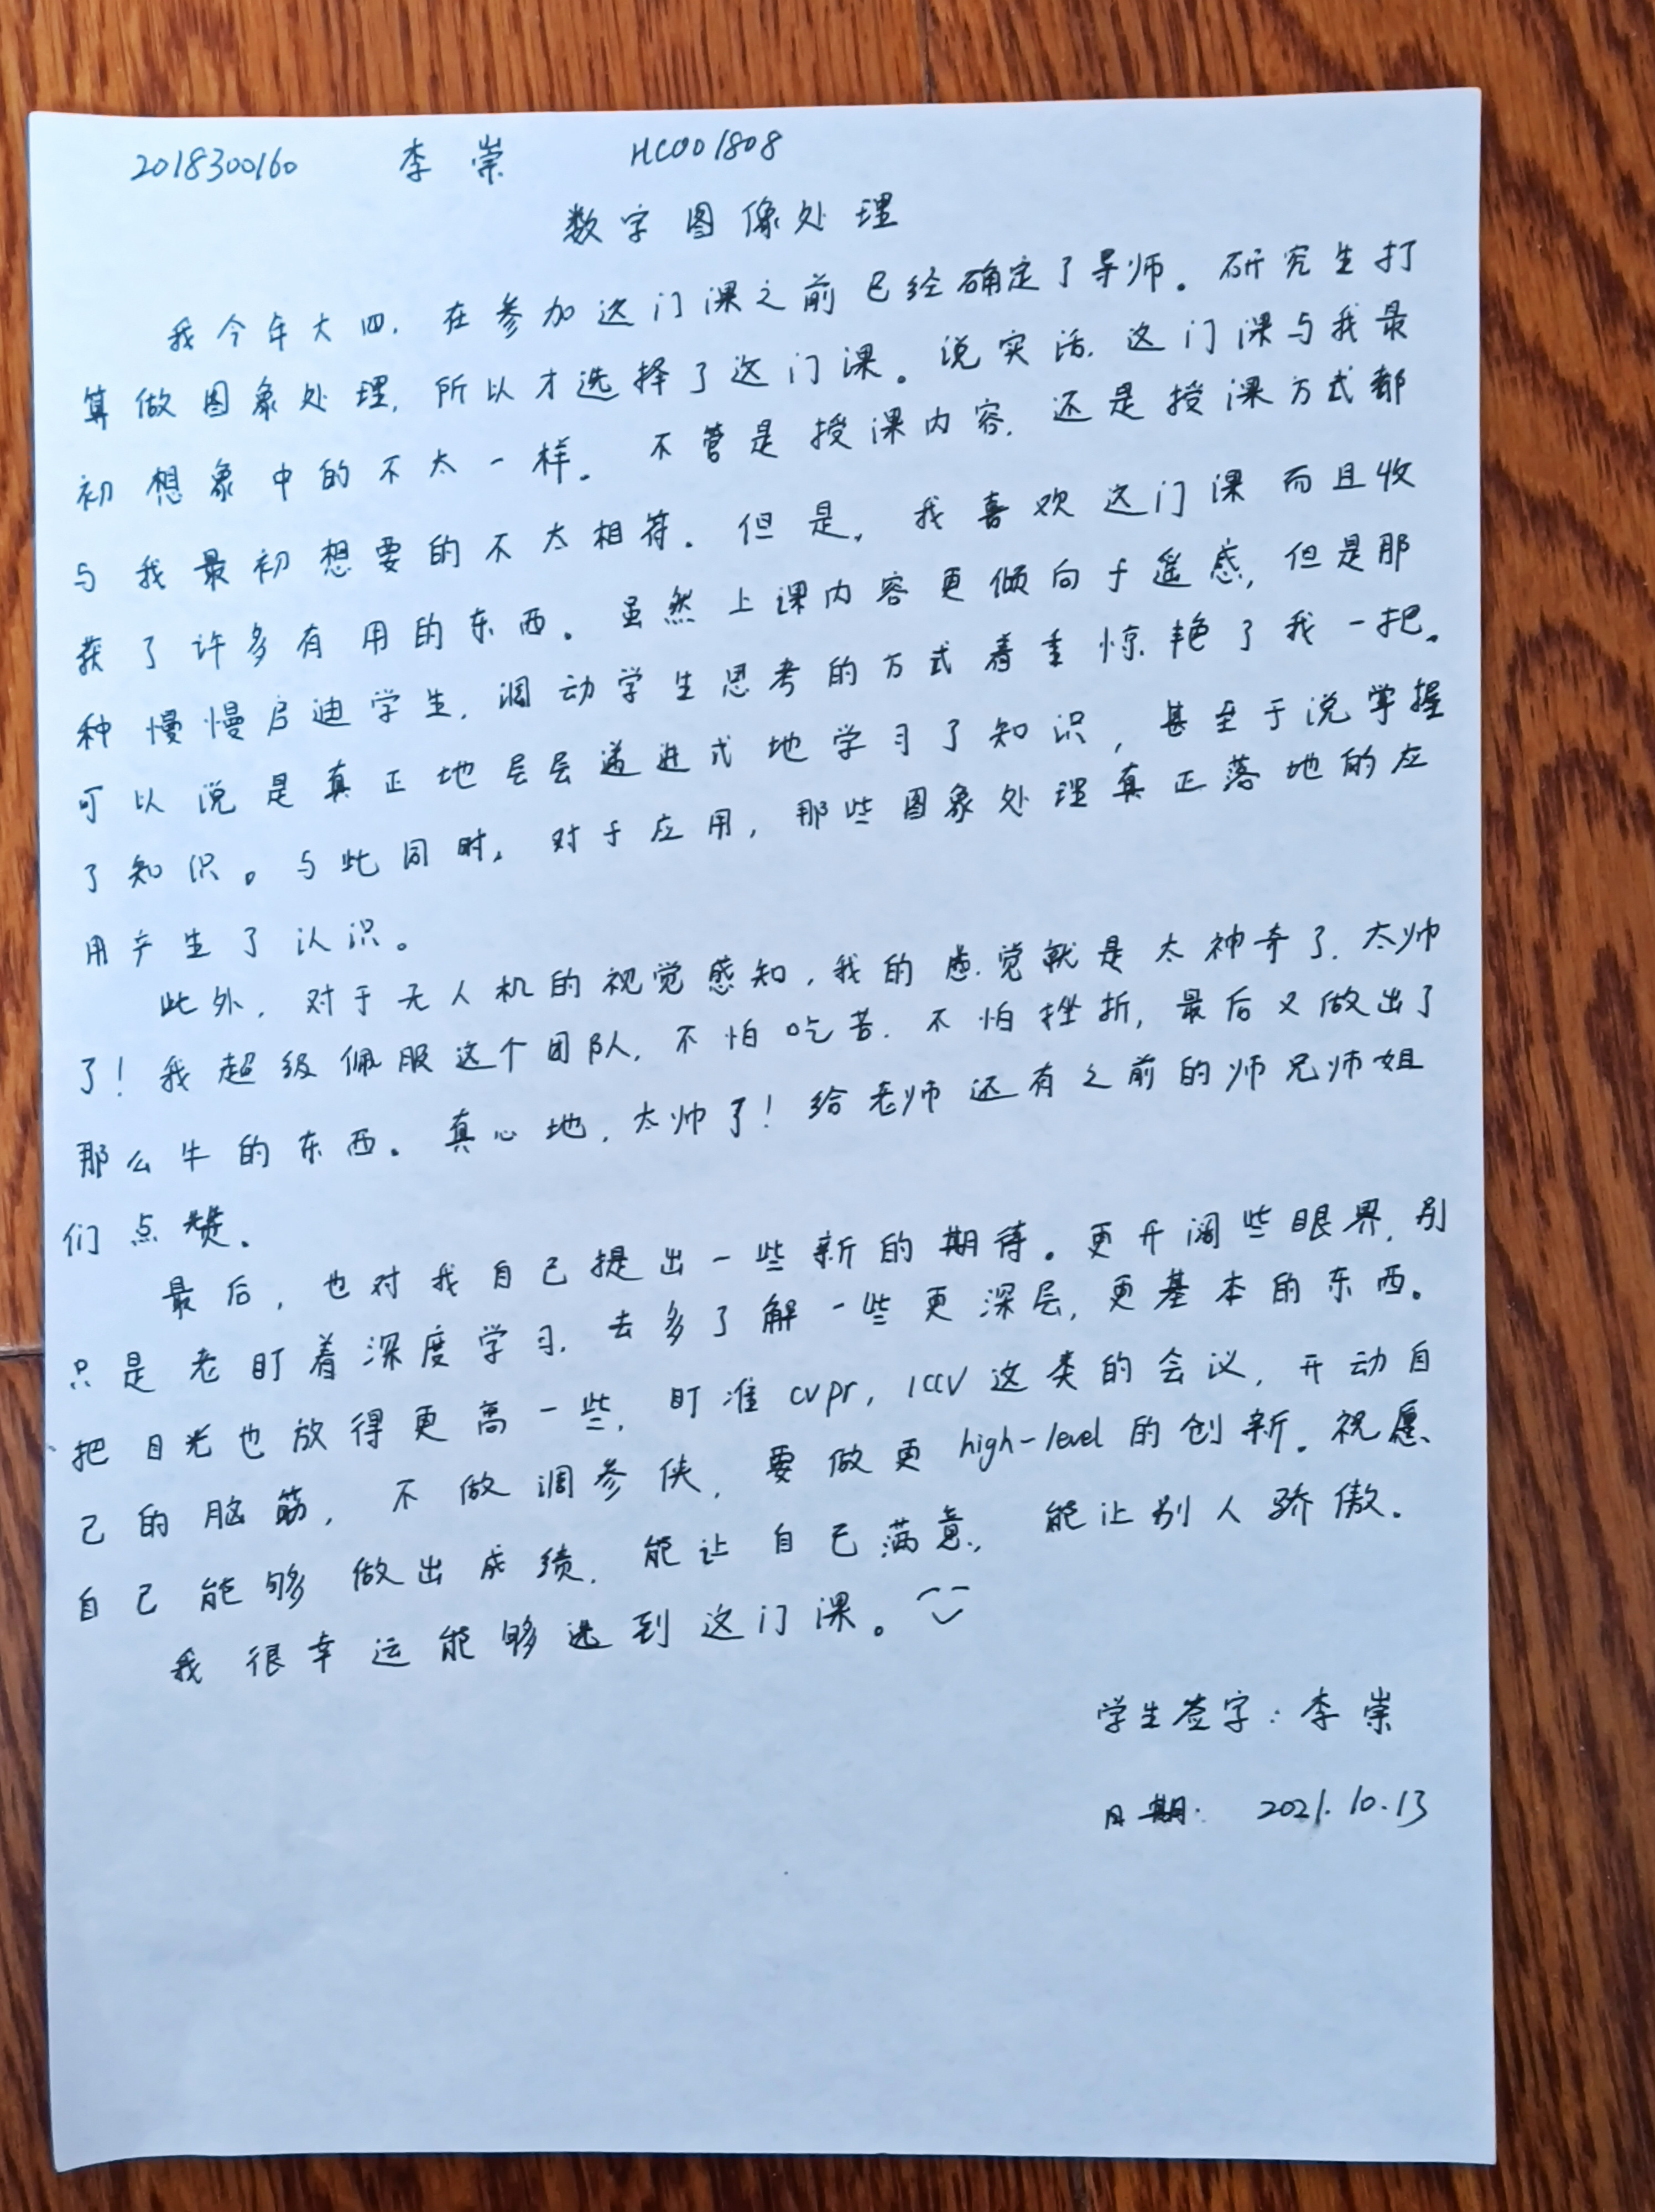 2018300160 李崇 HC001808
数字图像处理
我今年大四,在参加这门课之前已经确定了导师。研究生打
算做图象处理,所以才选择了这门课。说实话,这门课与我最
初想象中的不太一样。不管是授课内容,还是授课方式都
与我最初想要的不太相符。但是,我喜欢这门课而且收
获了许多有用的东西。虽然上课内容更倾向于遥感,但是那
种慢慢启迪学生,调动学生思考的方式着重惊艳了我一把。
可以说是真正地层层递进式地学习了知识,甚至于说掌握
了知识。与此同时,对于应用,那些图象处理真正落地的应
用产生了认识。
此外,对于无人机的视觉感知,我的感觉就是太神奇了,太帅
了!我超级佩服这个团队,不怕吃苦,不怕挫折,最后又做出了
那么牛的东西。真心地,太帅了!给老师还有之前的师兄师姐
们点赞。
最后,也对我自己提出一些新的期待。更开阔些眼界,别
只是老盯着深度学习,去多了解一些更深层,更基本的东西。
把目光也放得更高一些,盯准cvpr,ICCV这类的会议,开动自
己的脑筋,不做调参侠,要做更high-level的创新。祝愿
自己能够做出成绩,能让自己满意,能让别人骄傲。
我很幸运能够选到这门课。
学生签字:李崇
日期: 2021.10.13